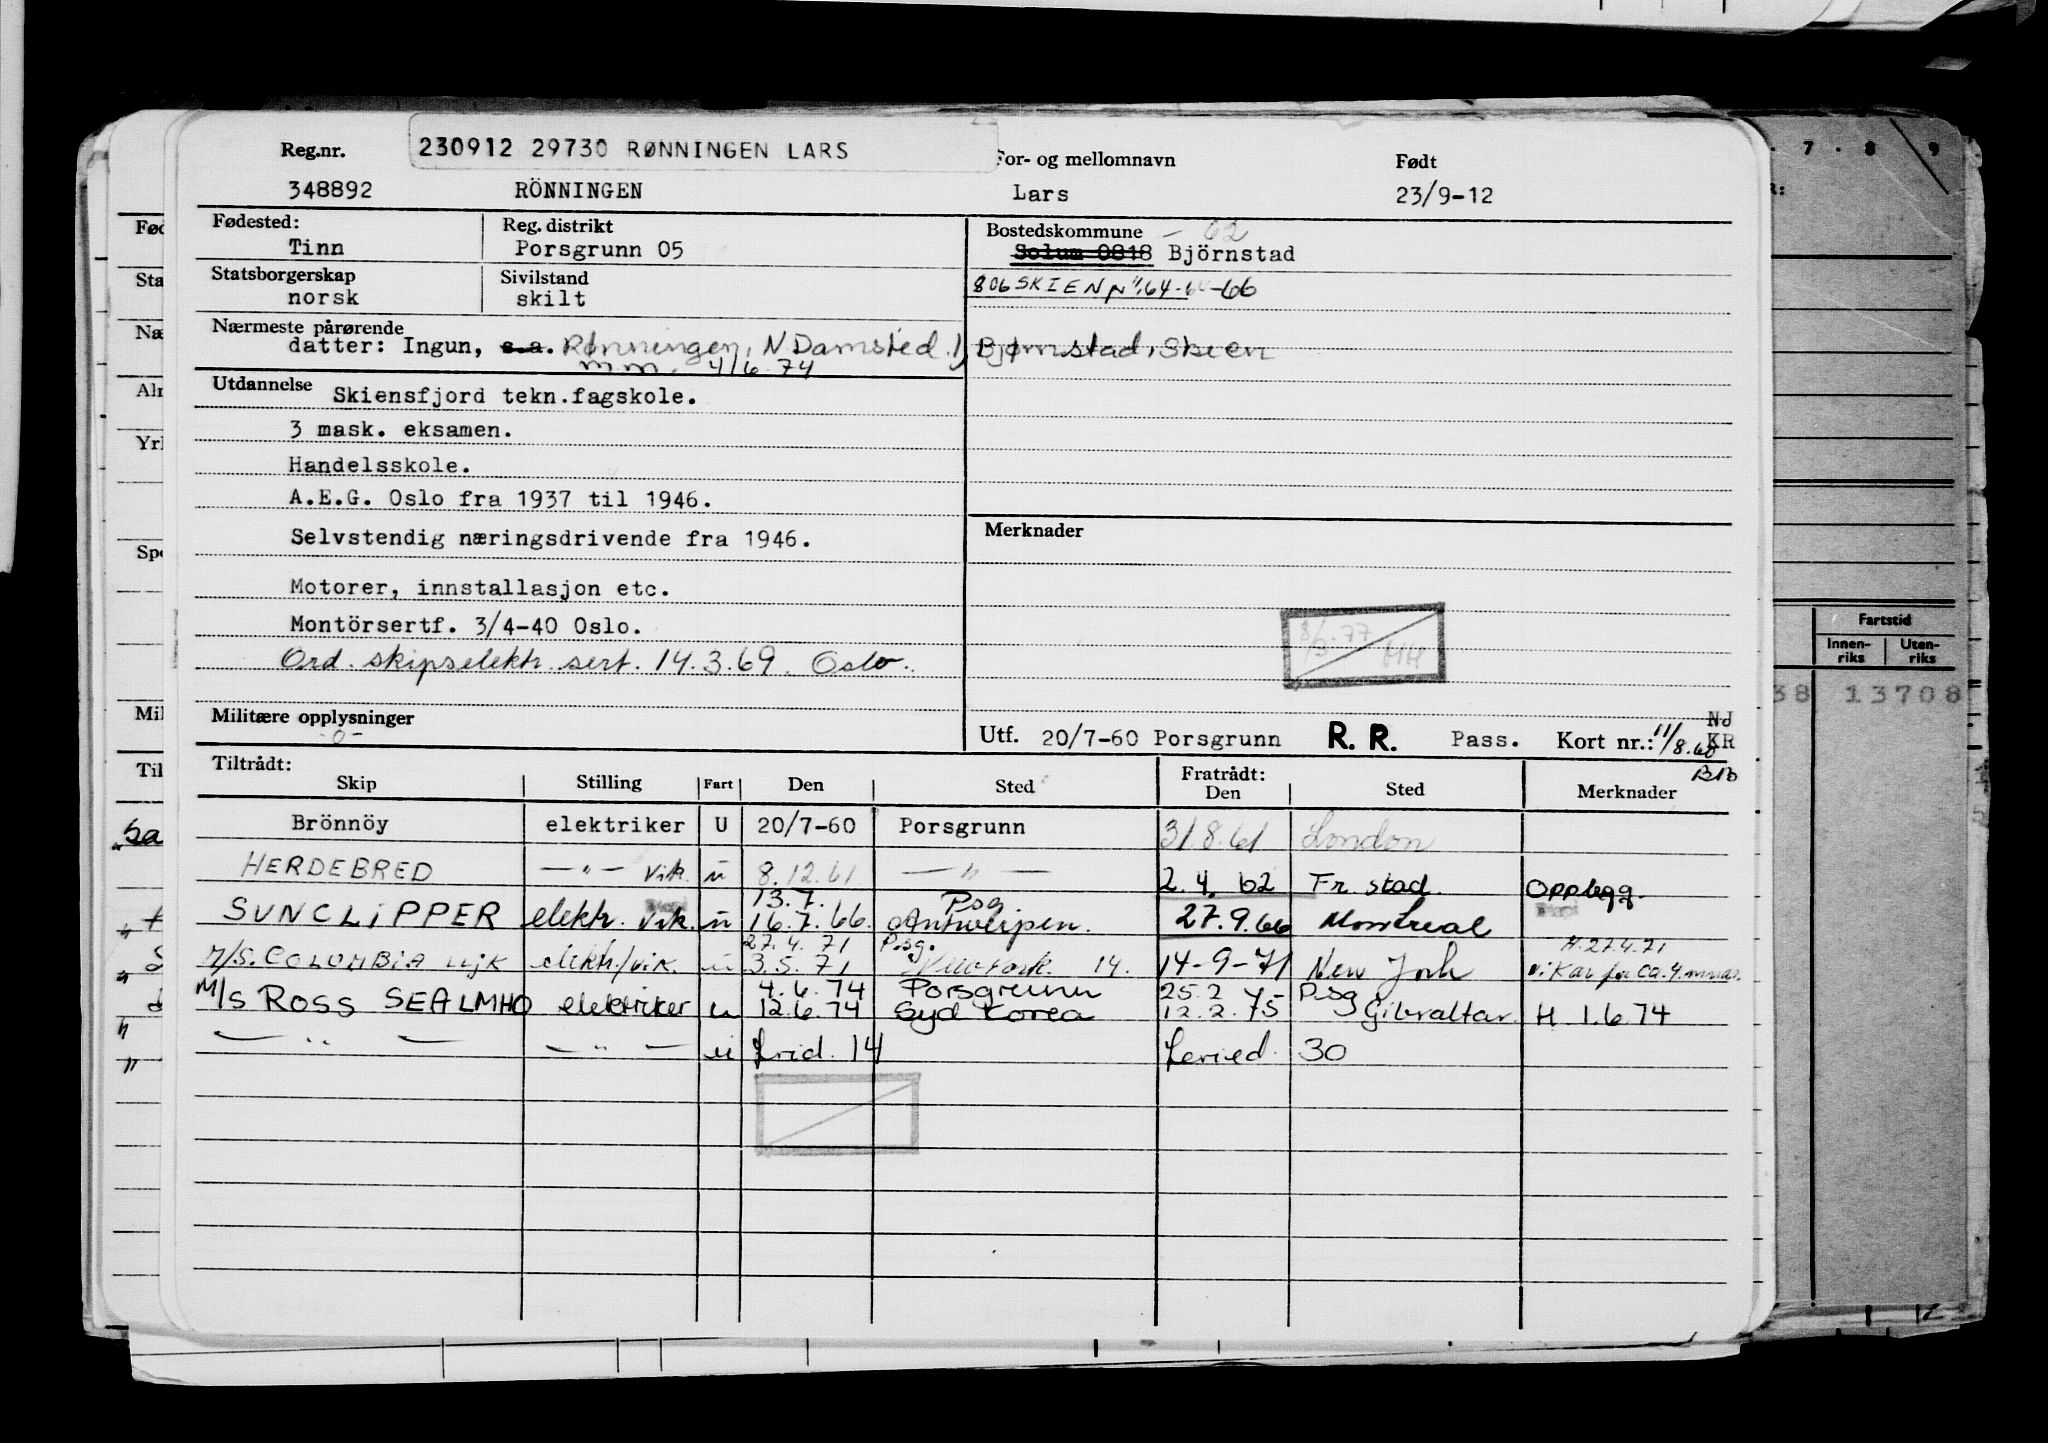 Reg.nr. 230912 29730 RØNNINGEN LARS For- og mellomnavn Født
348892 RÖNNINGEN Lars 23/9-12
Fødested: Reg. distrikt Bostedskommune - 62
Tinn Porsgrunn 05 Solum 0818 Björnstad
Statsborgerskap Sivilstand 806 SKIEN 64- -66
norsk skilt
Nærmeste pårørende
datter: Ingun, s.a. Rønningen, N Damsted 1, Bjørnstad, Skien
m.m. 4/6.74
Utdannelse Skiensfjord tekn.fagskole.
3 mask. eksamen.
Handelsskole.
A.E.G. Oslo fra 1937 til 1946.
Selvstendig næringsdrivende fra 1946. Merknader
Motorer, innstallasjon etc.
Montörsertf. 3/4-40 Oslo. 8/3-77 HH
Ord. skipselektr. sert. 14.3.69. Oslo.
Militære opplysninger
-o-
Utf. 20/7-60 Porsgrunn R. R. Pass. Kort nr.: 11/8.60 NJ KR
Tiltrådt: Fratrådt:
Skip Stilling Fart Den Sted Den Sted Merknader
Brönnöy elektriker U 20/7-60 Porsgrunn 31.8.61 London
HERDEBRED — " — vik. u 8.12.61 — " — 2.4.62 Fr. stad. Opplegg.
13.7. Psg
SUNCLIPPER elektr. vik. u 16.7.66. Antwerpen. 27.9.66 Montreal
27.4.71 P.sg. H.27.4.71
M/S. COLUMBIA elektr/vik. u 3.5.71 New York. 14. 14-9-71 New York vikar for ca. 4 mnd.
4.6.74 Porsgrunn 25.2 P.sg
M/S ROSS SEA LMHO elektriker u 12.6.74 Syd Korea 12.2.75 Gibraltar. H 1.6.74
— " — — " — u 14 30
Fød
Sta
Næ
Alr
Yrl
Spe
Mil
Til
7 . 8 . 9
Fartstid
Innen-riks Uten-riks
38 13708